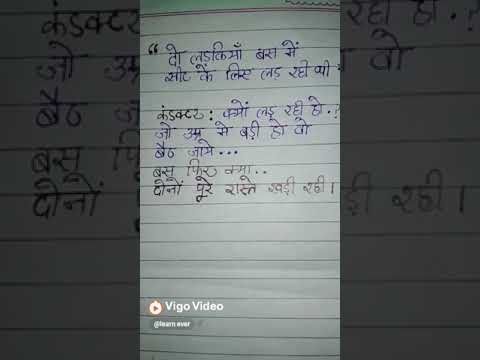 “ दो लड़कियाँ बस में
सीट के लिए लड़ रही थी
कंडक्टर : क्यों लड़ रही हो..?
जो उम्र से बड़ी हो वो
बैठ जाये...
बस फिर क्या..
दोनों पूरे रास्ते खड़ी रही।
Vigo Video
@learn ever